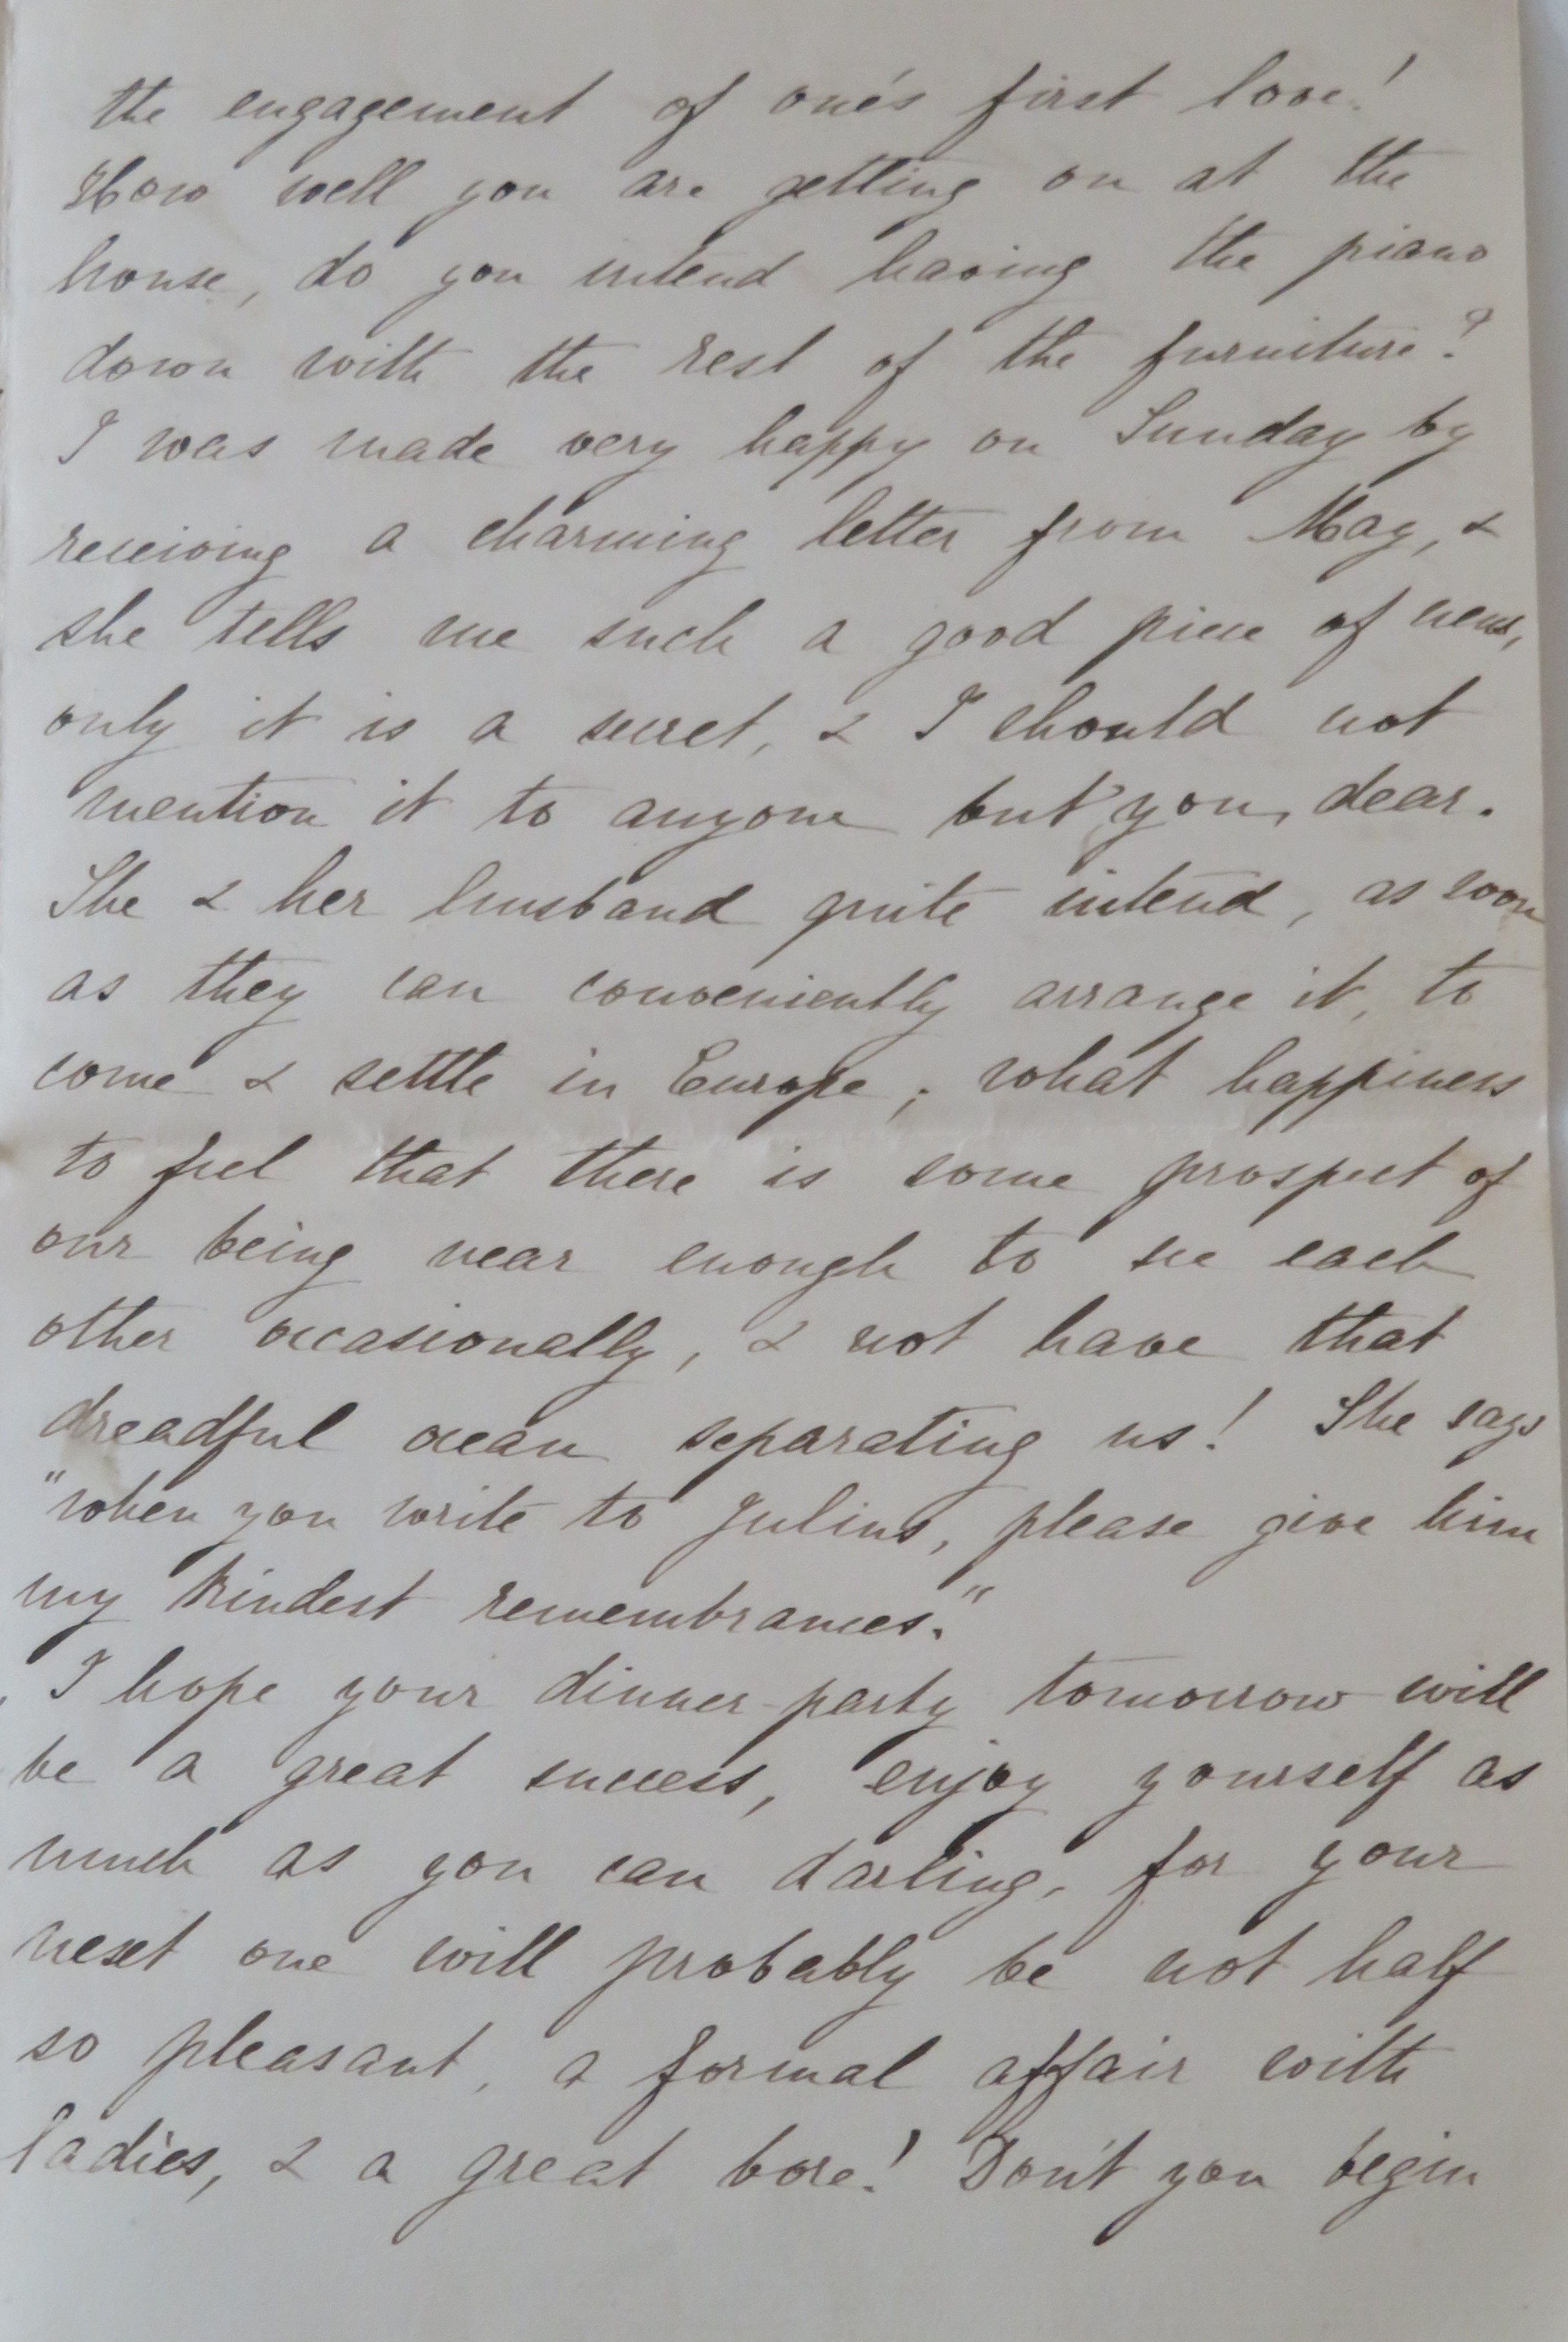 the engagement of one's first love!
How well you are getting on at the
house, do you intend having the piano
down with the rest of the furniture?
I was made very happy on Sunday by
receiving a charming letter from May, &
she tells me such a good piece of news,
only it is a secret, & I should not
mention it to anyone but you, dear.
She & her husband quite intend, as soon
as they can conveniently arrange it, to
come & settle in Europe; what happiness
to feel that there is some prospect of
our being near enough to see each
other occasionally, & not have that
dreadful ocean separating us! She says
"when you write to Julius, please give him
my kindest remembrances."
I hope your dinner-party tomorrow will
be a great success, enjoy yourself as
much as you can darling, for your
next one will probably be not half
so pleasant, a formal affair with
ladies, & a great bore! Don't you begin